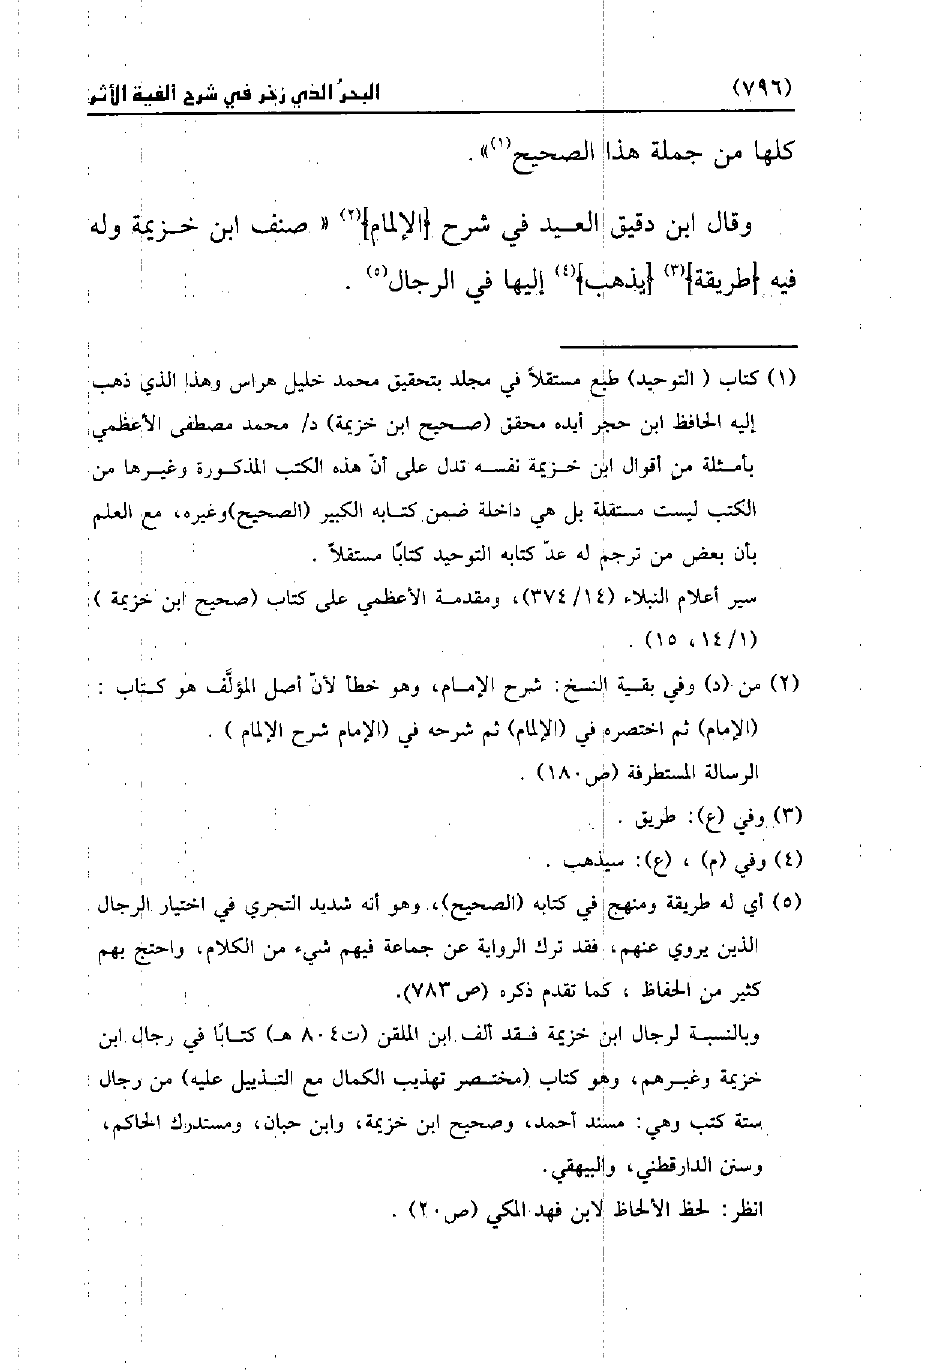 (٧٩٦) البحرُ الذي زخر في شرح ألفية الأثر
كلها من جملة هذا الصحيح(١)» .
وقال ابن دقيق العـيد في شرح [الإلمام](٢) « صنف ابن خـزيمة وله
فيه [طريقة](٣) [يذهب](٤) إليها في الرجال(٥) .
(١) كتاب ( التوحيد) طبع مستقلاً في مجلد بتحقيق محمد خليل هراس وهذا الذي ذهب
إليه الحافظ ابن حجر أيده محقق (صـحيح ابن خزيمة) د/ محمد مصطفى الأعظمي
بأمـثلة من أقوال ابن خـزيمة نفسـه تدل على أنّ هذه الكتب المذكـورة وغيـرها من
الكتب ليست مستقلة بل هي داخلة ضمن كتـابه الكبير (الصحيح)وغيره، مع العلم
بأن بعض من ترجم له عدّ كتابه التوحيد كتابًا مستقلاً .
سير أعلام النبلاء (١٤/ ٣٧٤)، ومقدمـة الأعظمي على كتاب (صحيح ابن خزيمة )
(١/ ١٤، ١٥) .
(٢) من (د) وفي بقيـة النسخ: شرح الإمـام، وهو خطأ لأنّ أصل المؤلَّف هو كـتاب :
(الإمام) ثم اختصره في (الإلمام) ثم شرحه في (الإمام شرح الإلمام ) .
الرسالة المستطرفة (ص١٨٠) .
(٣) وفي (ع): طريق .
(٤) وفي (م) ، (ع): سيذهب .
(٥) أي له طريقة ومنهج في كتابه (الصحيح)، وهو أنه شديد التحري في اختيار الرجال
الذين يروي عنهم، فقد ترك الرواية عن جماعة فيهم شيء من الكلام، واحتج بهم
كثير من الحفاظ ، كما تقدم ذكره (ص٧٨٣).
وبالنسبـة لرجال ابن خزيمة فـقد ألف ابن الملقن (ت٨٠٤ هـ) كتـابًا في رجال ابن
خزيمة وغيـرهم، وهو كتاب (مختـصر تهذيب الكمال مع التـذييل عليه) من رجال
ستة كتب وهي: مسند أحمد، وصحيح ابن خزيمة، وابن حبان، ومستدرك الحاكم،
وسنن الدارقطني، والبيهقي.
انظر: لحظ الألحاظ لابن فهد المكي (ص٢٠) .